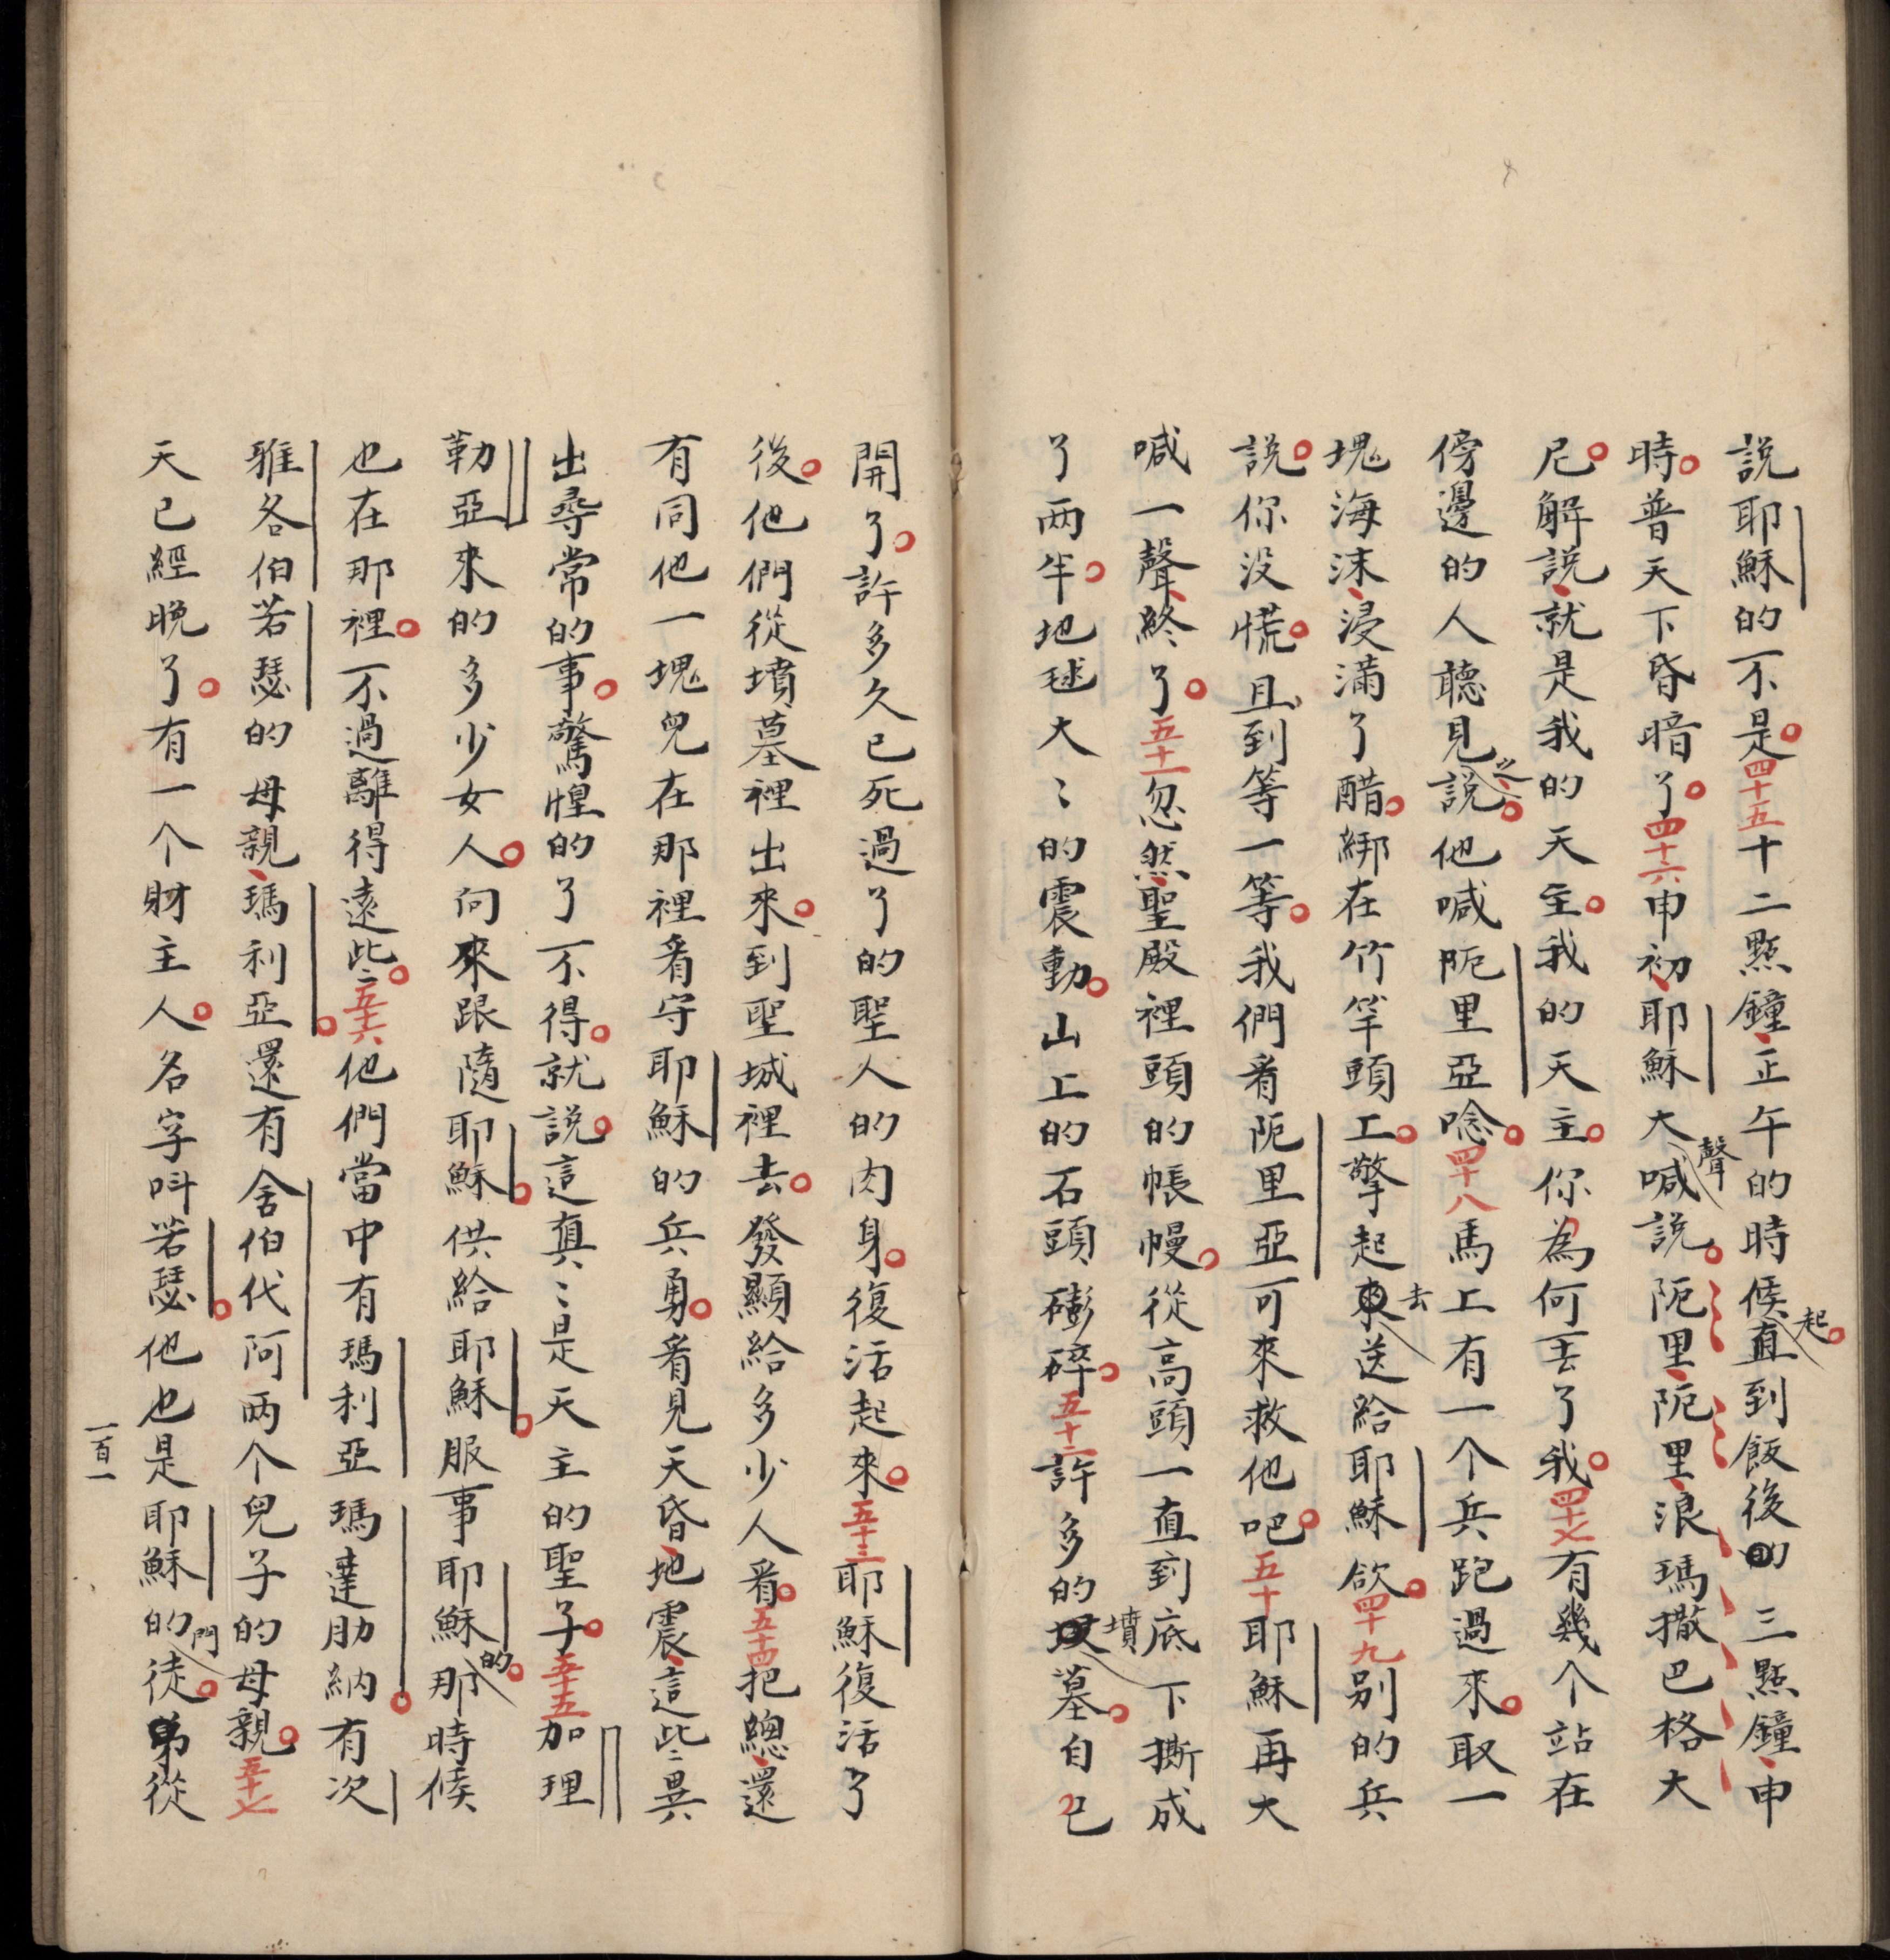 說耶穌的不是。四十五十二點鐘、正午的時候起。直到飯後的三點鐘、申
時。普天下昏暗了。四十六申初、耶穌大聲喊說。阨里、阨里、浪瑪撒巴格大
尼。解說、就是我的天主。我的天主。你為何丟了我。四十七有幾个站在
傍邊的人聽見之說。他喊阨里亞唸。四十八馬上有一个兵跑過來。取一
塊海沫、浸滿了醋。綁在竹竿頭上。擎起來去送給耶穌飲。四十九别的兵
說。你没慌。且到等一等。我們看阨里亞可來救他吧。五十耶穌再大
喊一聲、終了。五十一忽然、聖殿裡頭的帳幔。從高頭一直到底下撕成
了两半。地毬大〻的震動。山上的石頭磞碎。五十二許多的墳墓。自己
開了。許多久已死過了的聖人的肉身。復活起來。五十三耶穌復活了
後。他們從墳墓裡出來。到聖城裡去。發顯給多少人看。五十四把總、還
有同他一塊兒在那裡看守耶穌的兵勇。看見天昏、地震、這些〻異
出尋常的事。驚惶的了不得。就說。這真〻是天主的聖子。五十五加理
勒亞來的多少女人。向來跟隨耶穌。供給耶穌。服事耶穌的。那時候
也在那裡。不過離得遠些〻。五十六他們當中有瑪利亞瑪達肋納。有次
雅各伯若瑟的母親、瑪利亞。還有舍伯代阿两个兒子的母親。五十七
天已經晚了。有一个財主人。名字呌若瑟。他也是耶穌的門徒。從
一百一